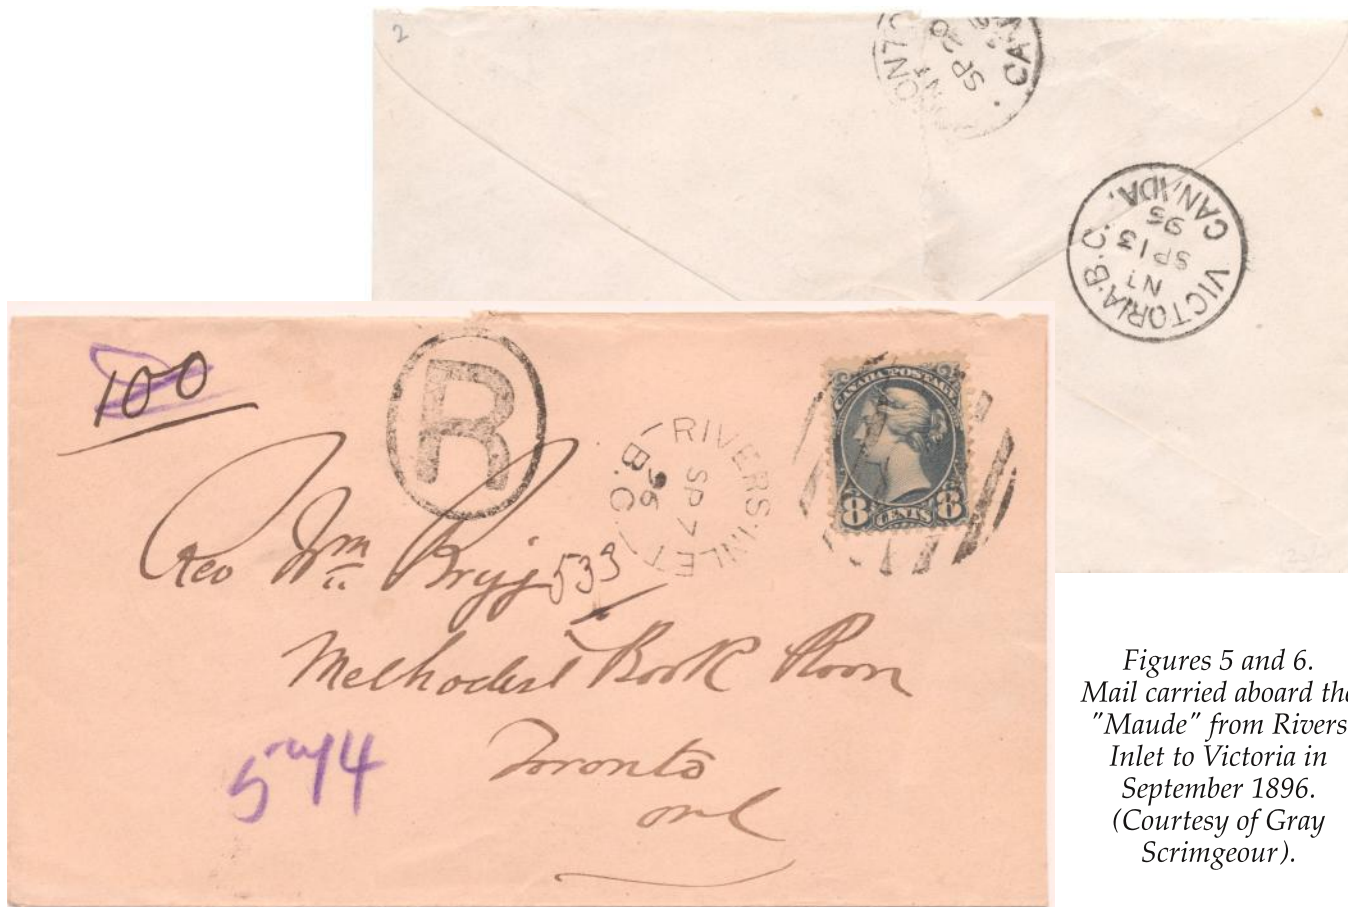 2
TORONTO
CAN
SP 20
VICTORIA·B.C.
CANADA.
N1
SP 13
96
100
R
RIVERS·INLET
B.C.
SP 7
96
CANADA POSTAGE
8 CENTS 8
Reo Wm Briggs
533
Methodist Book Room
Toronto
Ont
Figures 5 and 6.
Mail carried aboard the
"Maude" from Rivers
Inlet to Victoria in
September 1896.
(Courtesy of Gray
Scrimgeour).